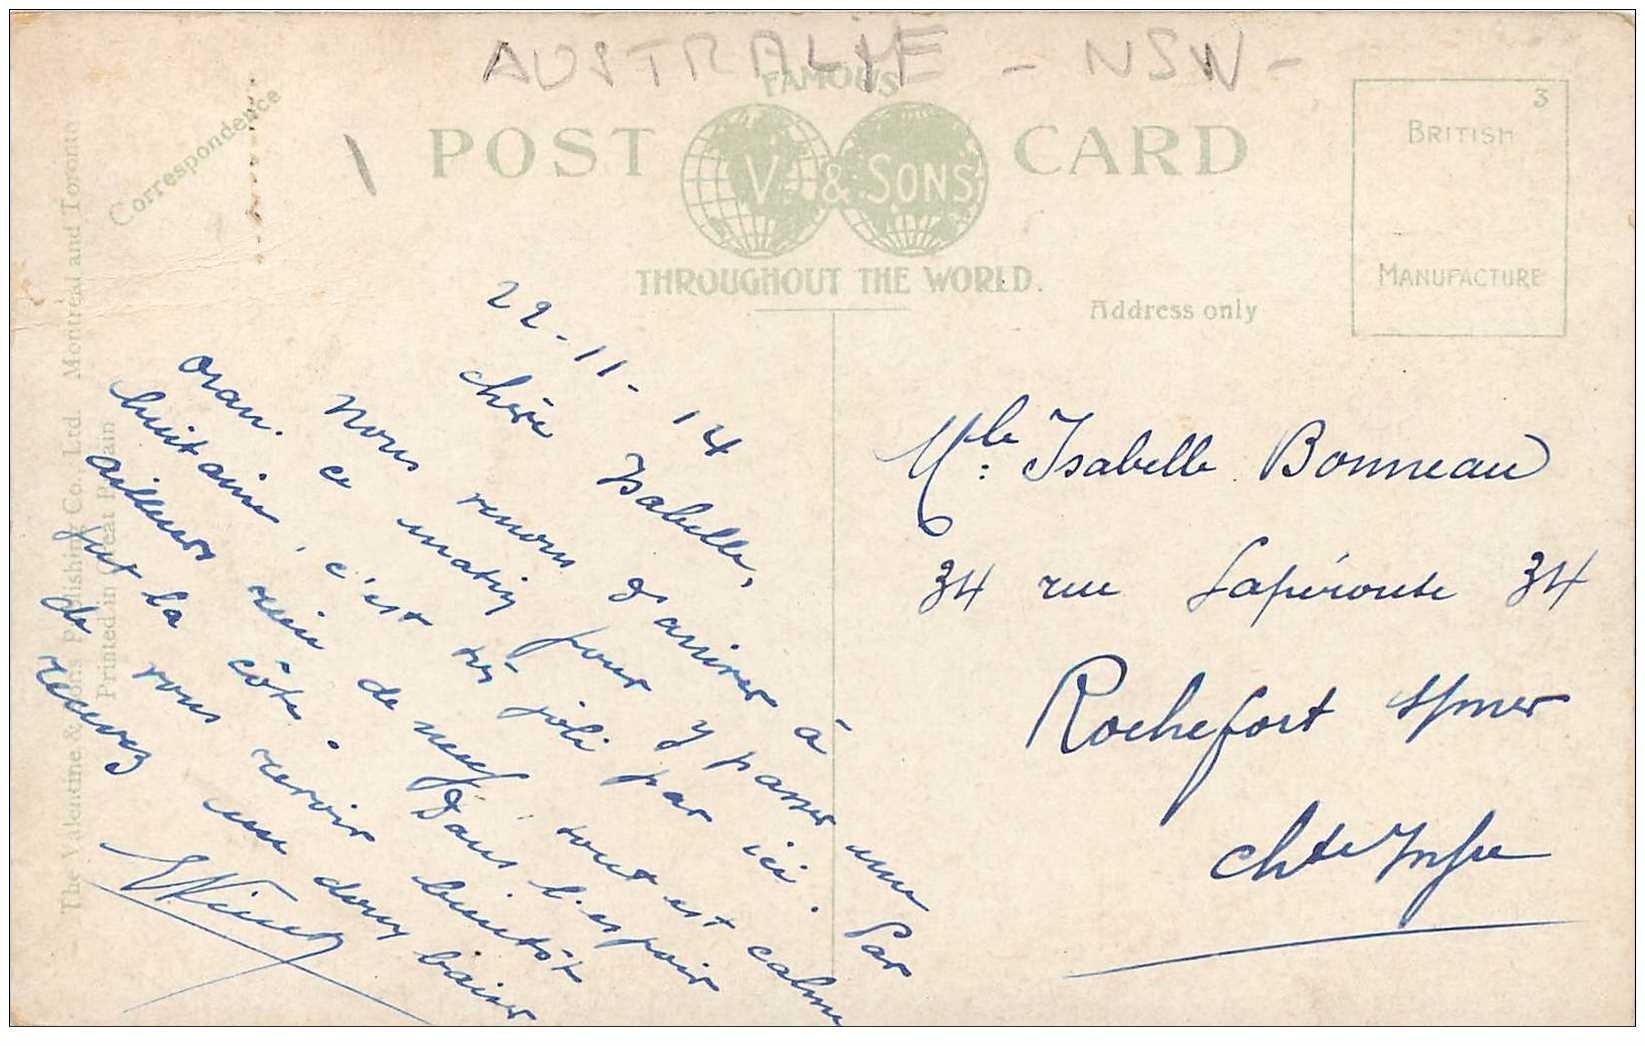 AUSTRALIE - NSW -
FAMOUS
POST CARD
V. & SONS
THROUGHOUT THE WORLD.
Correspondence
Address only
3
BRITISH
MANUFACTURE
The Valentine & Sons Publishing Co., Ltd. Montreal and Toronto
Printed in Great Britain
22-11-14
chère Isabelle,
Nous venons d'arriver à
Oran. ce matin pour y passer une
huitaine, c'est très joli par ici. Par
ailleurs rien de neuf tout est calme
sur la côte. Dans l'espoir
de vous revoir bientôt
recevez un doux baiser
Mlle: Isabelle Bonneau
34 rue Lapérouse 34
Rochefort s/mer
chte Infre